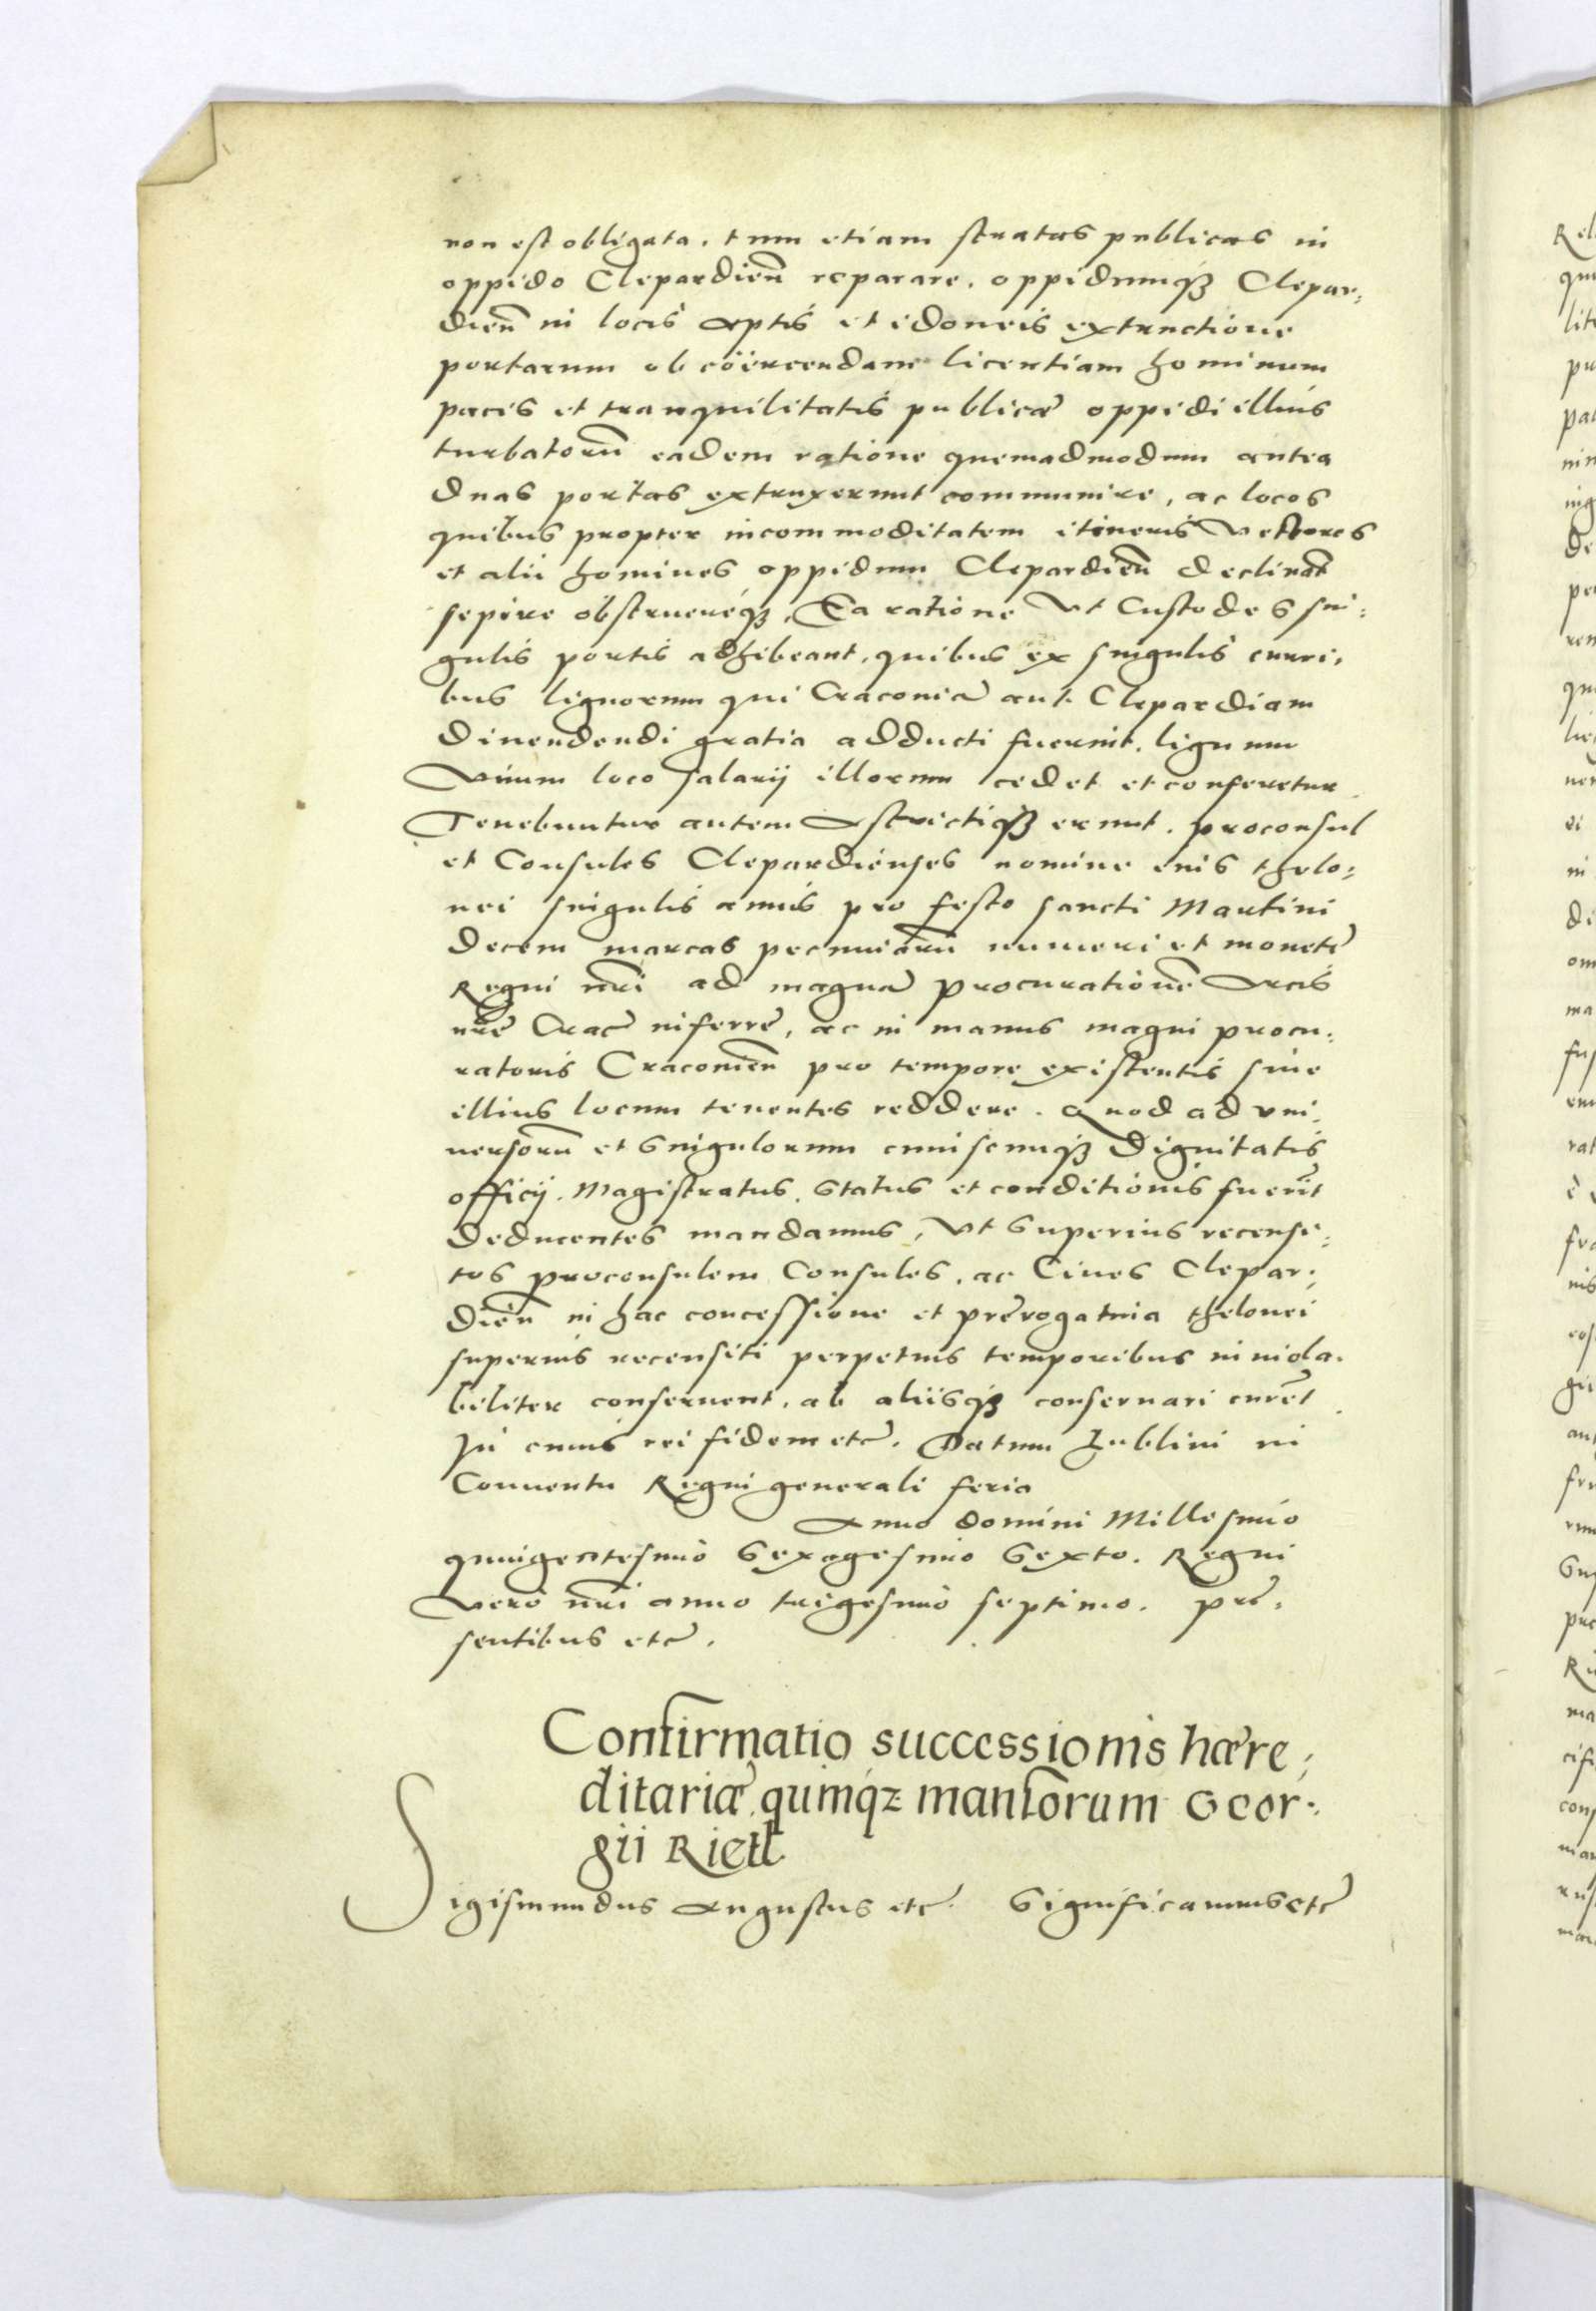 non est obligata. tum etiam stratas publicas in
oppido Clepardieñ reparare. oppidumq₃ Clepar:
dieñ in locis aptis et idoneis extructione
portarum ob coërcendam licentiam hominum
pacis et tranquilitatis publicæ oppidi illius
turbatorũ eadem ratione quemadmodum antea
duas portas extruxerunt communire, ac locos
quibus propter incommoditatem itineris vectores
et alii homines oppidum Clepardieñ declinãt
sepire obstruereq₃, Ea ratione Vt Custodes sin:
gulis portis adhibeant. quibus ex singulis curri,
bus lignorum qui Cracoviã aut Clepardiam
divendendi gratia adducti fuerint. lignum
Vnum loco salarij illorum cedet et conferetur.
Tenebuntur autem astrictiq₃ erunt. proconsul
et Consules Clepardienses nomine eius thelo:
nei singulis annis pro festo sancti Martini
decem marcas pecuniarũ numeri et monetę
Regni nr̃i ad magnã procurationẽ Arcis
nr̃ę Crac̃ inferre, ac in manus magni procu:
ratoris Cracovieñ pro tempore existentis sive
illius locum tenentes reddere. Quod ad vni,
versorũ et singulorum cuiuscunq₃ dignitatis
officij. Magistratus. Status et conditionis fuerĩt
deducentes mandamus, Vt superius recensi:
tos proconsulem Consules. ac Cives Clepar:
dieñ in hac concessione et prerogativa thelonei
superius recensiti perpetuis temporibus inviola.
biliter conservent. ab aliisq₃ conservari curẽt
In cuius rei fidem etc̃. Datum Lublini in
Conventu Regni generali feria
Anno domini Millesimo
quingentesimo Sexagesimo Sexto. Regni
Vero nr̃i anno trigesimo septimo. pre,
sentibus etc̃.
Confirmatio successionis hære;
ditariæ quinq₃ mansorum Geor:
gii Rietl
Sigismundus Augustus etc̃. Significamus etc̃